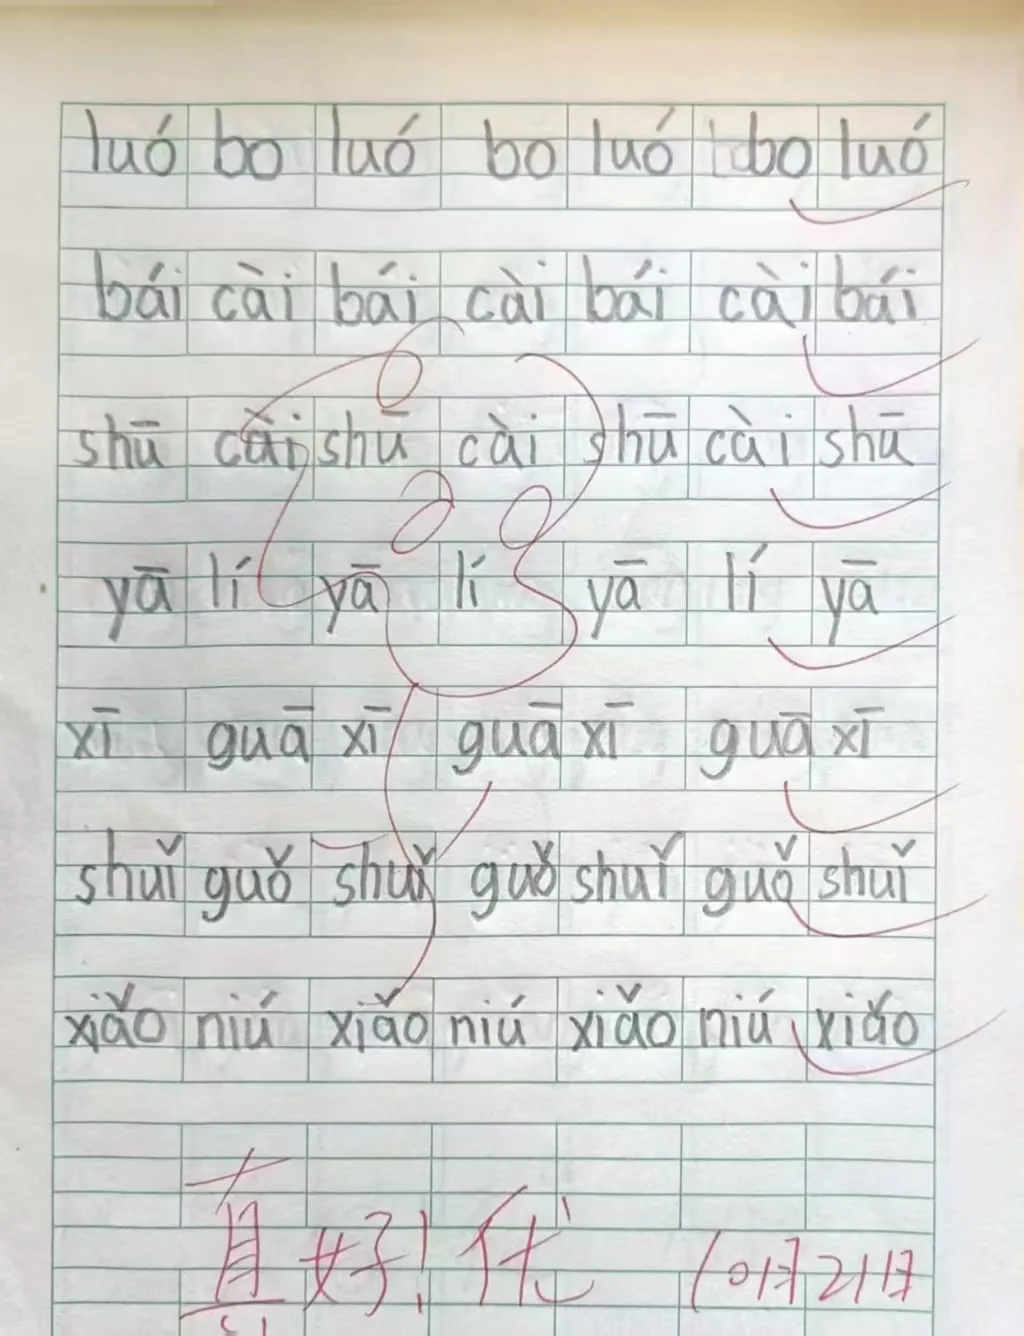 luó bo luó bo luó bo luó
bái cài bái cài bái cài bái
shū cài shū cài shū cài shū
yā lí yā lí yā lí yā
xī guā xī guā xī guā xī
shuǐ guǒ shuǐ guǒ shuǐ guǒ shuǐ
xiǎo niú xiǎo niú xiǎo niú xiǎo
真好！优 10月21日